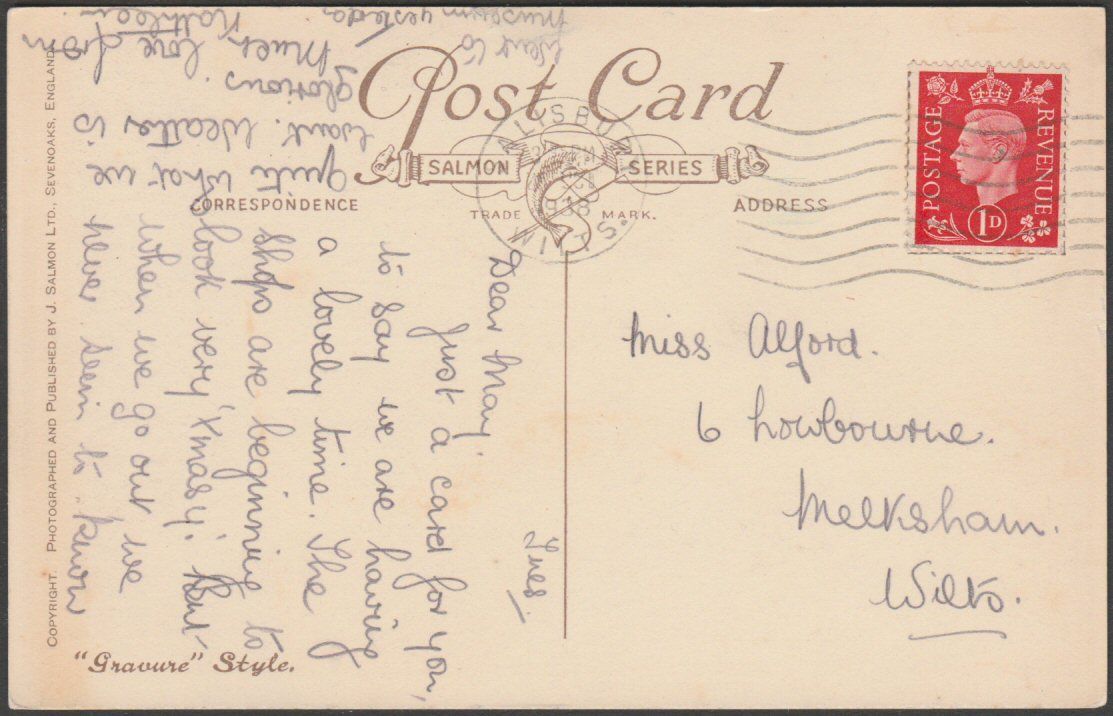 Post Card
SALMON SERIES
TRADE MARK.
CORRESPONDENCE
ADDRESS
POSTAGE REVENUE
1D
WILTS.
1938
Tues.
Dear May,
Just a card for you,
to say we are having
a lovely time. The
shops are beginning to
look very 'Xmasy'. But
when we go out we
never seem to know
quite what we
want. Weather is
glorious.
Much love from
Kathleen
Went to
Museum yesterday
Miss Alford.
6 Lowbourne.
Melksham.
Wilts.
"Gravure" Style.
COPYRIGHT. PHOTOGRAPHED AND PUBLISHED BY J. SALMON LTD., SEVENOAKS, ENGLAND.